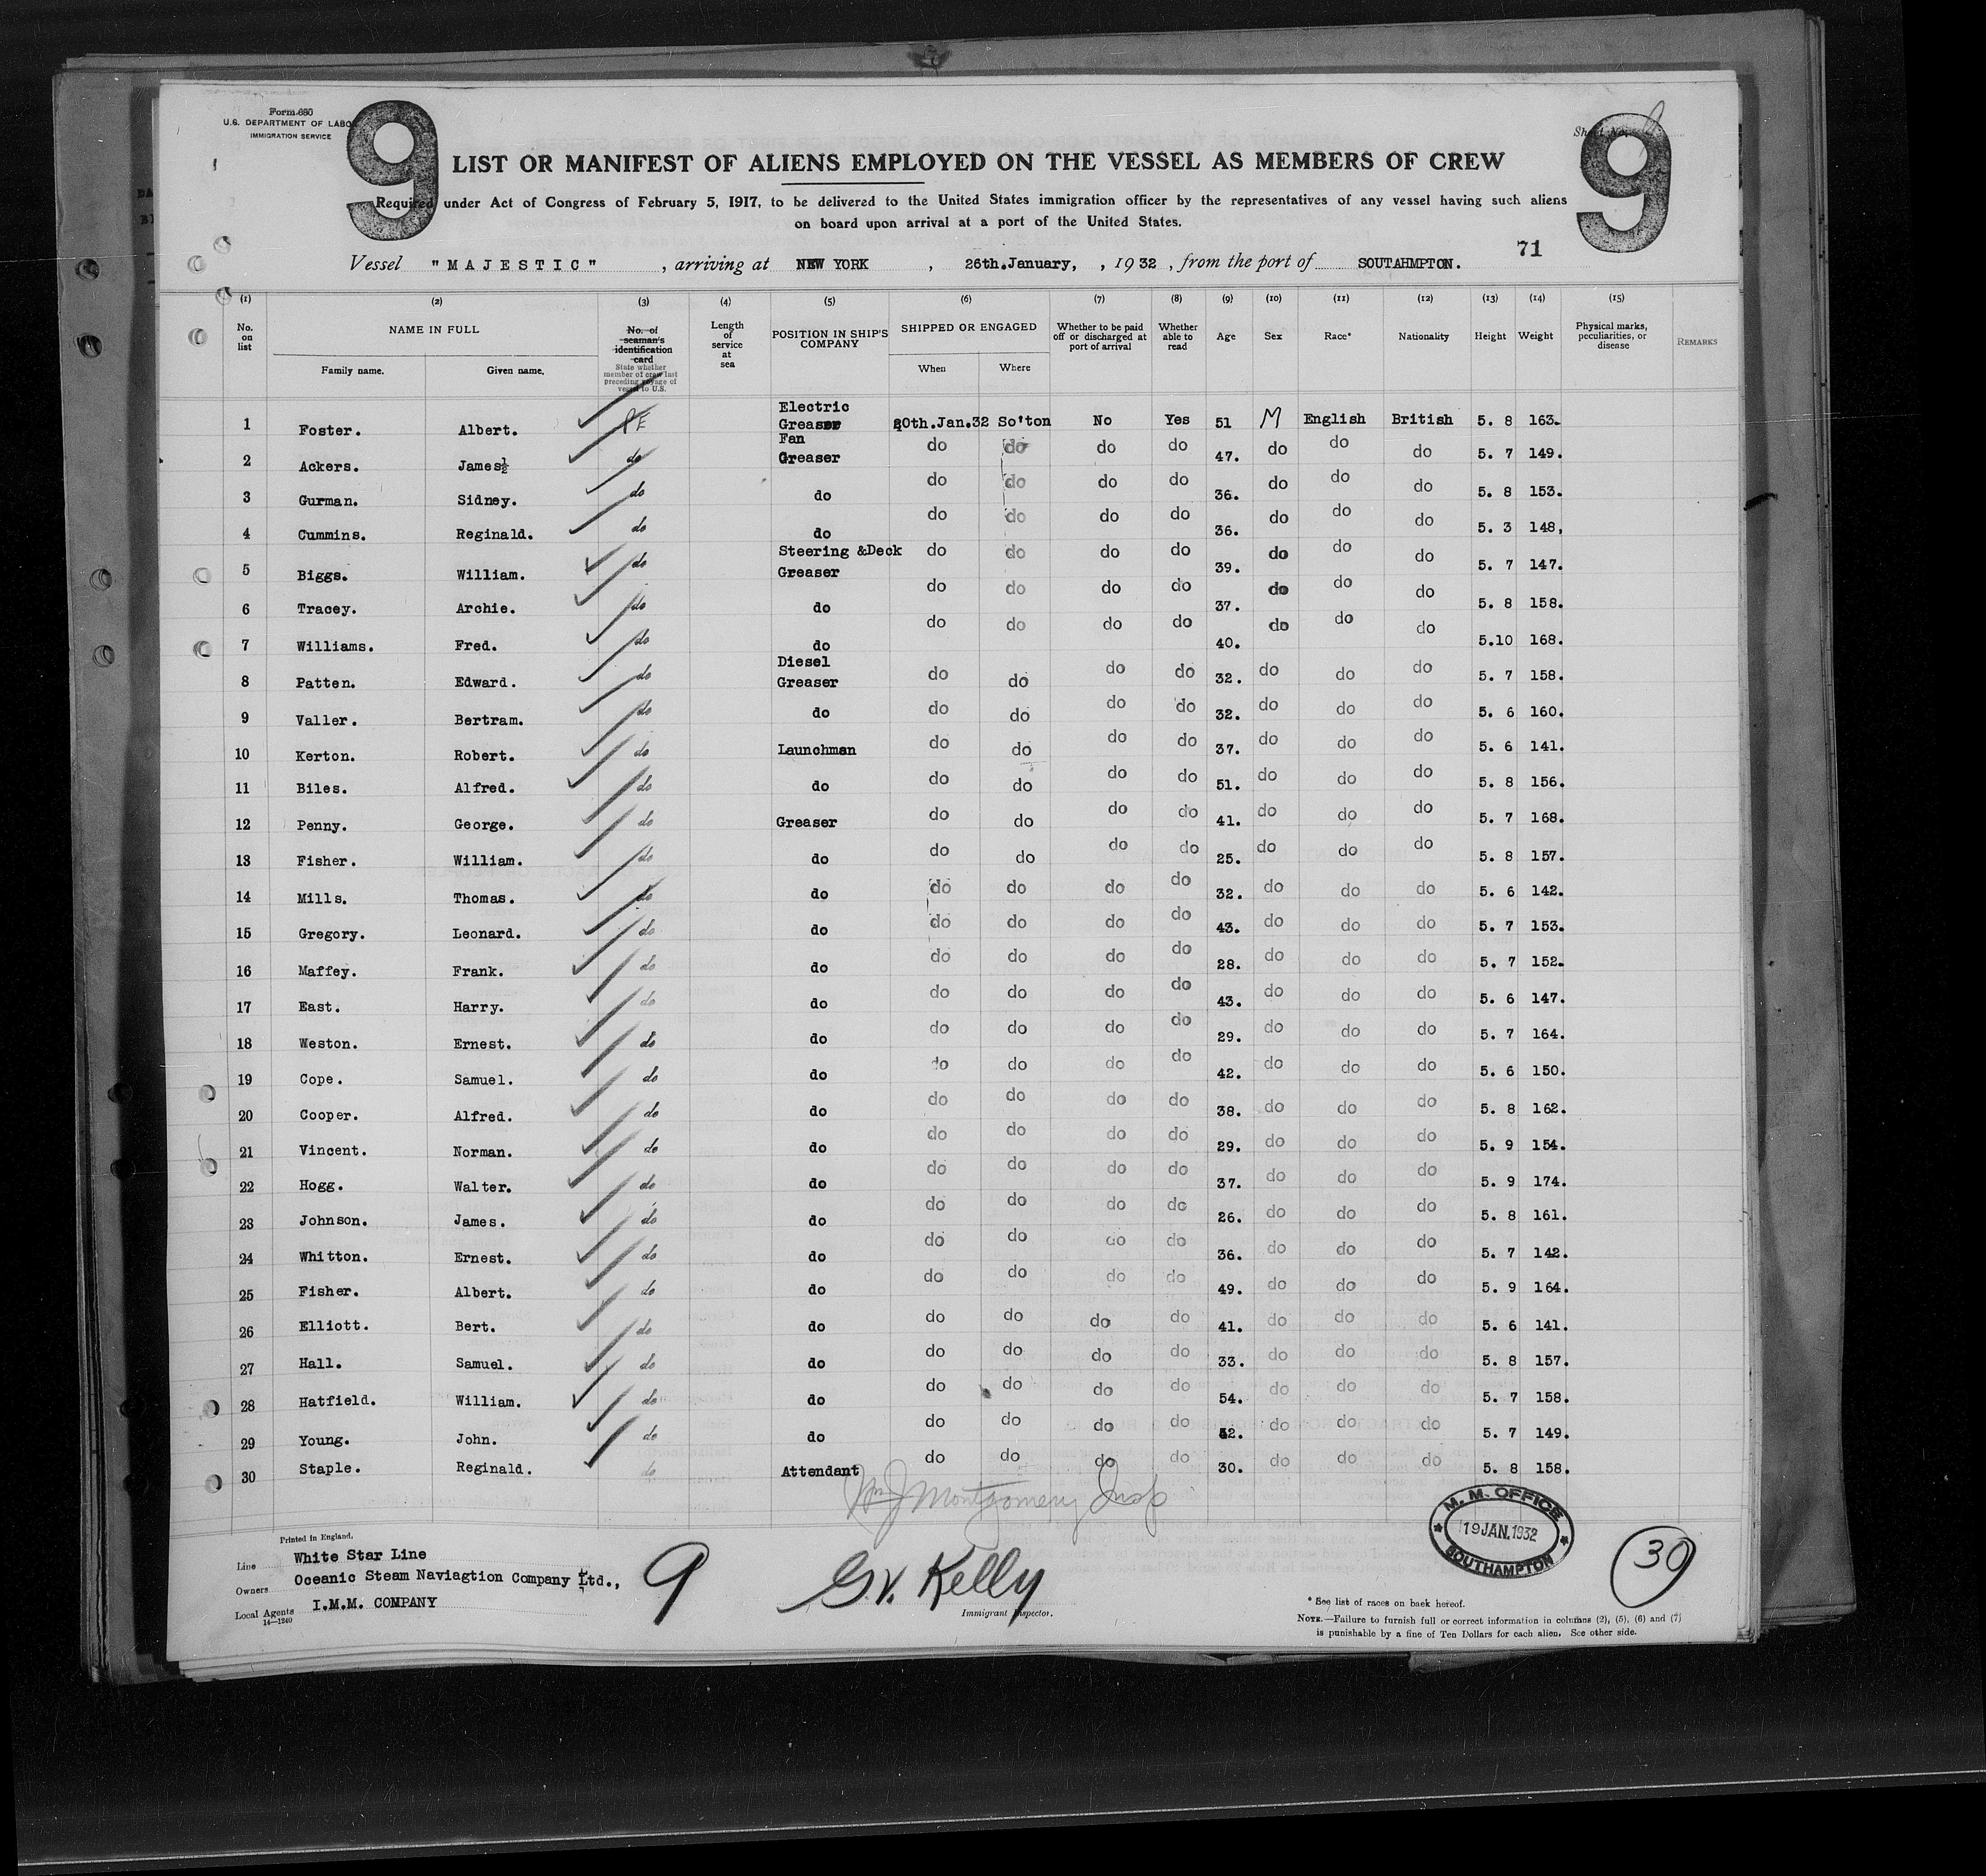 Form 680
U.S. DEPARTMENT OF LABOR
IMMIGRATION SERVICE
9
9
Sheet No.
LIST OR MANIFEST OF ALIENS EMPLOYED ON THE VESSEL AS MEMBERS OF CREW
Required under Act of Congress of February 5, 1917, to be delivered to the United States immigration officer by the representatives of any vessel having such aliens
on board upon arrival at a port of the United States.
71
Vessel "MAJESTIC" , arriving at NEW YORK , 26th.January, , 1932 , from the port of SOUTAHMPTON.
(1) (2) (3) (4) (5) (6) (7) (8) (9) (10) (11) (12) (13) (14) (15)
No. on list NAME IN FULL Family name. Given name. No. of seaman's identification card State whether member of crew last preceding voyage of vessel to U.S. Length of service at sea POSITION IN SHIP'S COMPANY SHIPPED OR ENGAGED When Where Whether to be paid off or discharged at port of arrival Whether able to read Age Sex Race* Nationality Height Weight Physical marks, peculiarities, or disease REMARKS
1 Foster. Albert. Electric Greaser 20th.Jan.32 So'ton No Yes 51 M English British 5. 8 163.
2 Ackers. James. do Fan Greaser do do do do 47. do do do 5. 7 149.
3 Gurman. Sidney. do do do do do do 36. do do do 5. 8 153.
4 Cummins. Reginald. do do do do do do 36. do do do 5. 3 148,
5 Biggs. William. do Steering &Deck Greaser do do do do 39. do do do 5. 7 147.
6 Tracey. Archie. do do do do do do 37. do do do 5. 8 158.
7 Williams. Fred. do do do do do do 40. do do do 5.10 168.
8 Patten. Edward. do Diesel Greaser do do do do 32. do do do 5. 7 158.
9 Valler. Bertram. do do do do do do 32. do do do 5. 6 160.
10 Kerton. Robert. do Launchman do do do do 37. do do do 5. 6 141.
11 Biles. Alfred. do do do do do do 51. do do do 5. 8 156.
12 Penny. George. do Greaser do do do do 41. do do do 5. 7 168.
13 Fisher. William. do do do do do do 25. do do do 5. 8 157.
14 Mills. Thomas. do do do do do do 32. do do do 5. 6 142.
15 Gregory. Leonard. do do do do do do 43. do do do 5. 7 153.
16 Maffey. Frank. do do do do do do 28. do do do 5. 7 152.
17 East. Harry. do do do do do do 43. do do do 5. 6 147.
18 Weston. Ernest. do do do do do do 29. do do do 5. 7 164.
19 Cope. Samuel. do do do do do do 42. do do do 5. 6 150.
20 Cooper. Alfred. do do do do do do 38. do do do 5. 8 162.
21 Vincent. Norman. do do do do do do 29. do do do 5. 9 154.
22 Hogg. Walter. do do do do do do 37. do do do 5. 9 174.
23 Johnson. James. do do do do do do 26. do do do 5. 8 161.
24 Whitton. Ernest. do do do do do do 36. do do do 5. 7 142.
25 Fisher. Albert. do do do do do do 49. do do do 5. 9 164.
26 Elliott. Bert. do do do do do do 41. do do do 5. 6 141.
27 Hall. Samuel. do do do do do do 33. do do do 5. 8 157.
28 Hatfield. William. do do do do do do 54. do do do 5. 7 158.
29 Young. John. do do do do do do 42. do do do 5. 7 149.
30 Staple. Reginald. do Attendant do do do do 30. do do do 5. 8 158.
Wm J Montgomery Insp
Printed in England.
Line White Star Line
Owners Oceanic Steam Naviagtion Company Ltd.,
Local Agents I.M.M. COMPANY
14—1240
9
G.V. Kelly
Immigrant Inspector.
M. M. OFFICE
19 JAN. 1932
SOUTHAMPTON
30
* See list of races on back hereof.
NOTE.—Failure to furnish full or correct information in columns (2), (5), (6) and (7)
is punishable by a fine of Ten Dollars for each alien. See other side.